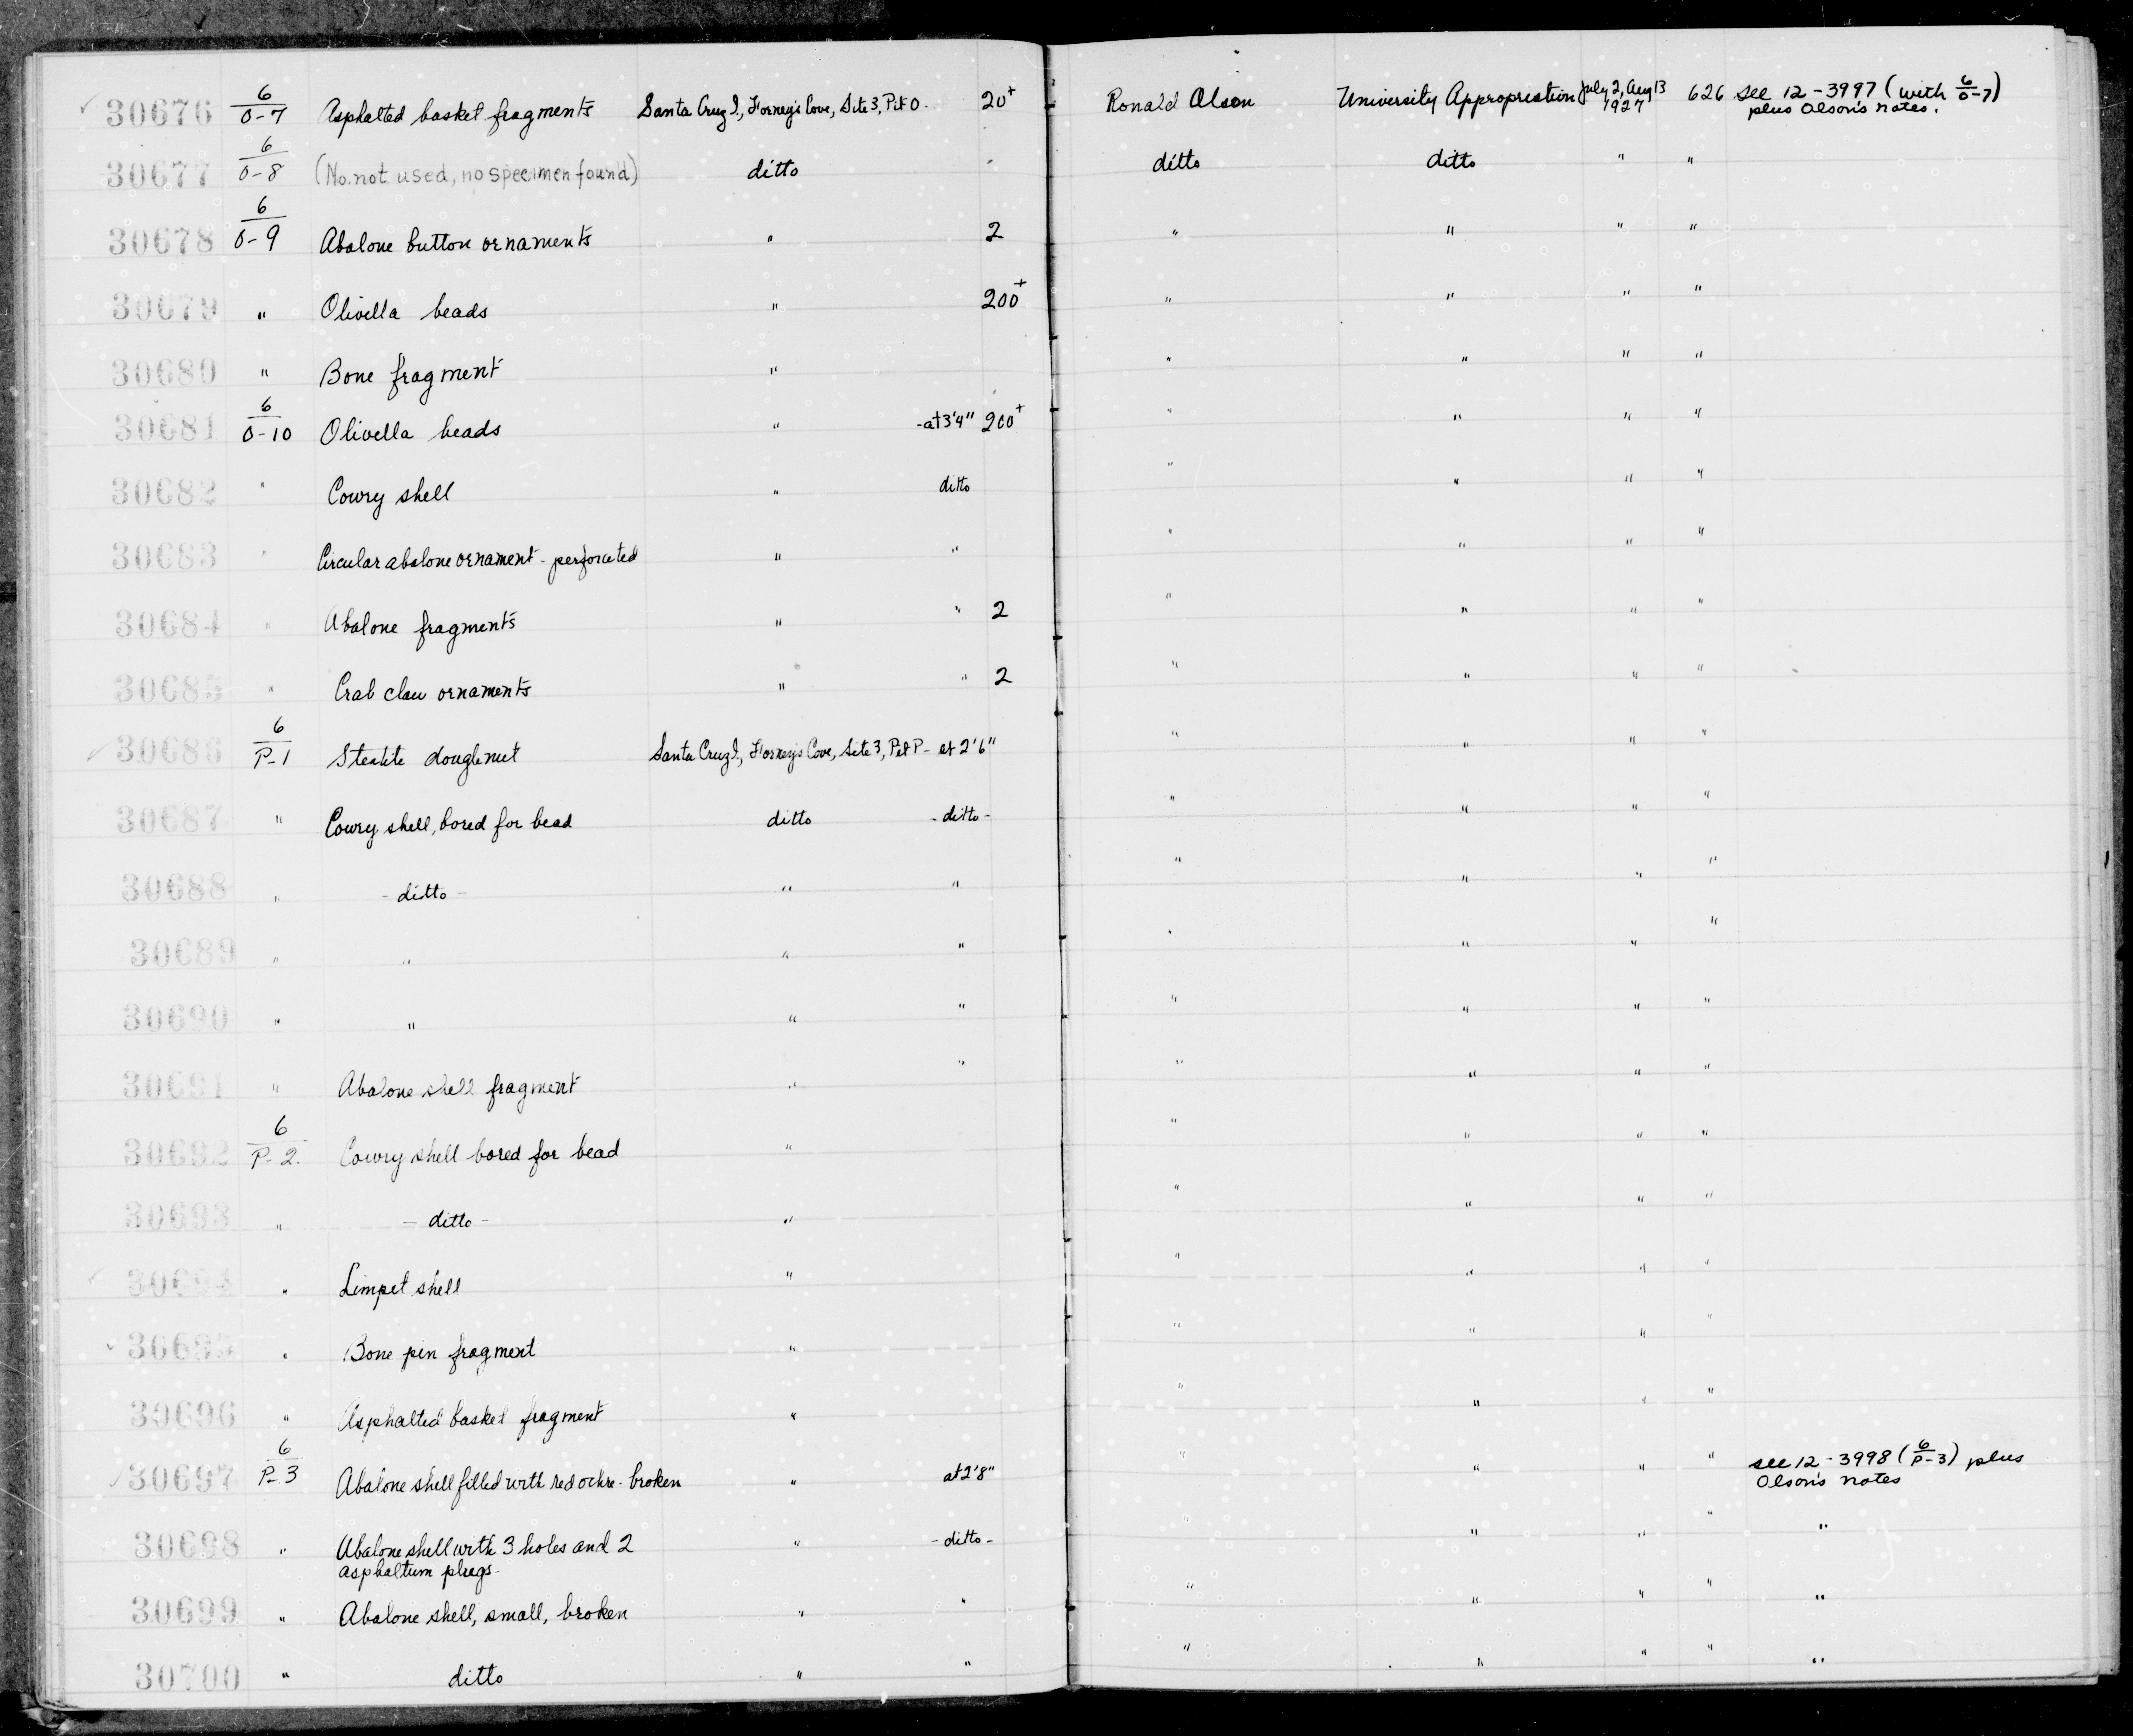 30676 6/0-7 Asphalted basket fragments Santa Cruz I., Forney's Cove, Site 3, Pit O - 20+ Ronald Olson University Appropriation July 2, Aug 13 1927 626 see 12-3997 (with 6/0-7) plus Olson's notes.
30677 6/0-8 (No. not used, no specimen found) ditto ditto ditto " "
30678 6/0-9 Abalone button ornaments " 2 " " " "
30679 " Olivella beads " 200+ " " " "
30680 " Bone fragment " " " " "
30681 6/0-10 Olivella beads " -at 3'4" 200+ " " " "
30682 " Cowry shell " ditto " " " "
30683 " Circular abalone ornament - perforated " " " " " "
30684 " Abalone fragments " " 2 " " " "
30685 " Crab claw ornaments " " 2 " " " "
30686 6/P-1 Steatite doughnut Santa Cruz I., Forney's Cove, Site 3, Pit P - at 2'6" " " " "
30687 " Cowry shell, bored for bead ditto - ditto - " " " "
30688 " - ditto - " " " " " "
30689 " " " " " " " "
30690 " " " " " " " "
30691 " Abalone shell fragment " " " " " "
30692 6/P-2 Cowry shell bored for bead " " " " "
30693 " - ditto - " " " " "
30694 " Limpet shell " " " " "
30695 " Bone pin fragment " " " " "
30696 " Asphalted basket fragment " " " " "
30697 6/P-3 Abalone shell filled with red ochre - broken " at 2'8" " " " " see 12-3998 (6/P-3) plus Olson's notes
30698 " Abalone shell with 3 holes and 2 asphaltum plugs - " - ditto - " " " " "
30699 " Abalone shell, small, broken " " " " " " "
30700 " ditto " " " " " " "